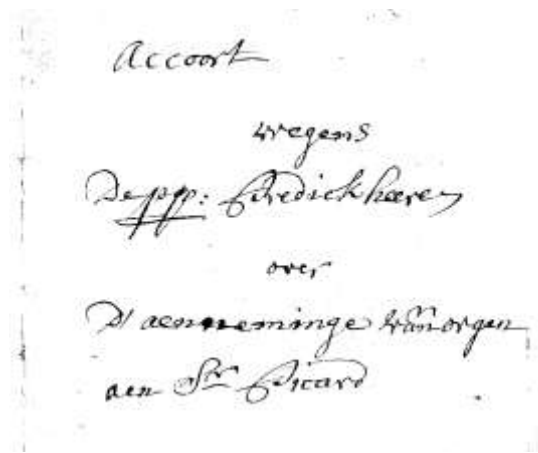 Accoort
wegens
De pp: Predickheeren
over
D'aenneminge van orgen
aen Sr Picard